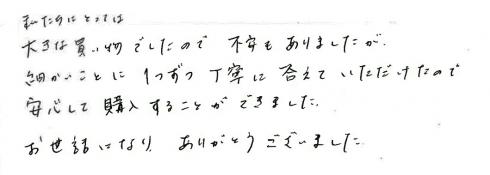 私たちにとっては
大きな買い物でしたので 不安もありましたが、
細かいことに 1つずつ 丁寧に 答えて いただけたので
安心して 購入することが できました。
お世話になり、ありがとうございました。